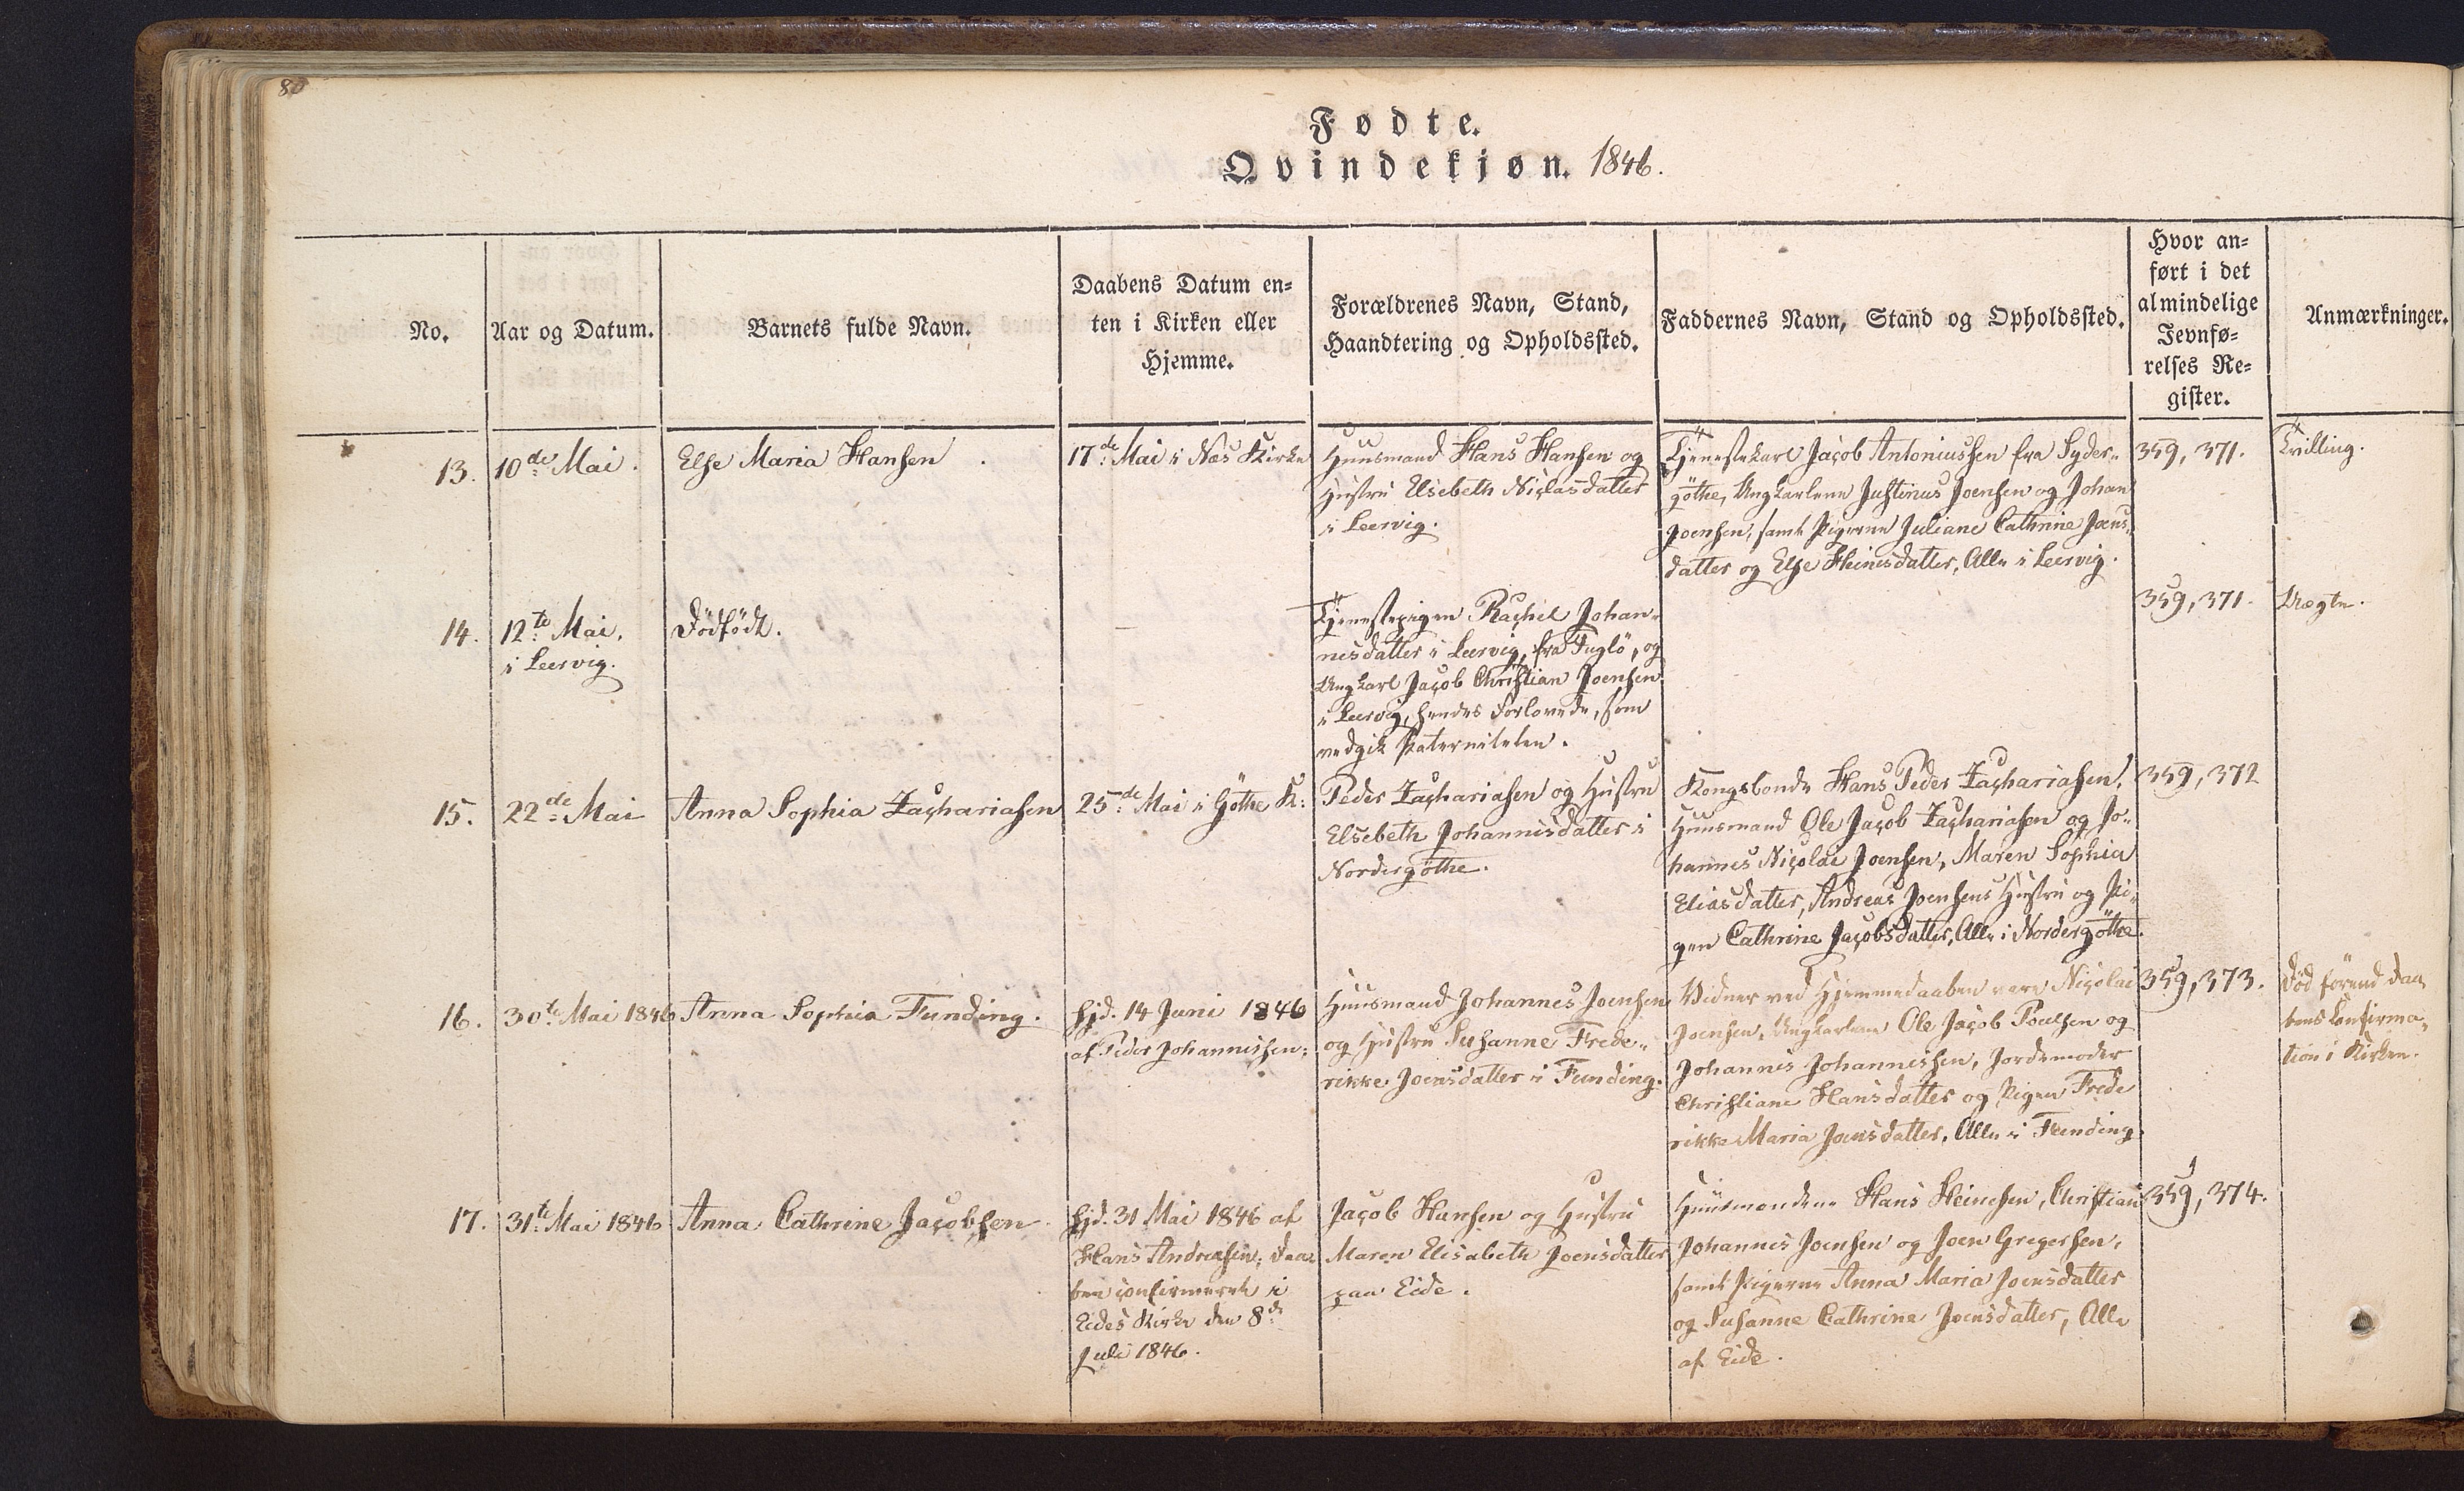 80
Fødte.
Qvindekjøn. 1846.
No.
Aar og Datum.
Barnets fulde Navn.
Daabens Datum en=
ten i Kirken eller
Hjemme.
Forældrenes Navn, Stand,
Haandtering og Opholdssted.
Faddernes Navn, Stand og Opholdssted.
Hvor an=
ført i det
almindelige
Jevnfø=
relses Re=
gister.
Anmærkninger.
13.
10de Mai.
Else Maria Hansen.
17de Mai i Næs Kirke
Huusmand Hans Hansen og
Hustru Elsebeth Niclasdatter
i Leervig.
Tjenestekarl Jacob Antoniussen fra Syder=
göthe, Ungkarlene Justinus Joensen og Johan
Joensen, samt Pigerne Juliane Cathrine Joens=
datter og Else Heinesdatter, Alle i Leervig.
359, 371.
Tvilling.
14.
12te Mai,
i Leervig.
Dödfödt.
—
Tjenestepigen Rachel Johan=
nesdatter i Leervig, fra Fuglö, og
Ungkarl Jacob Christian Joensen
i Leervig, hendes Forlovede, som
vedgik Paterniteten.
359, 371.
Uægte.
15.
22de Mai
Anna Sophia Zachariasen
25de Mai i Göthe K:
Peder Zachariasen og Hustru
Elsebeth Johannisdatter i
Nordergöthe.
Kongsbonde Hans Peder Zachariasen,
Huusmand Ole Jacob Zachariasen og Jo=
hannes Nicolai Joensen, Maren Sophia
Eliasdatter, Andreas Joensens Hustru og Pi=
gen Cathrine Jacobsdatter, Alle i Nordergöthe.
359, 372
16.
30te Mai 1846
Anna Sophia Funding.
Hjd. 14 Juni 1846
af Peder Johannissen;
Huusmand Johannes Joensen
og Hustru Susanne Frede=
rikke Joensdatter i Funding.
Vidner ved Hjemmedaaben vare Nicolai
Joensen, Ungkarlene Ole Jacob Poulsen og
Johannis Johannissen, Jordemoder
Christiane Hansdatter og Pigen Frede
rikke Maria Joensdatter, Alle i Funding.
359, 373.
Död förend Daa=
bens Confirma=
tion i Kirken.
17.
31te Mai 1846
Anna Cathrine Jacobsen.
Hjd. 31 Mai 1846 af
Hans Andreasen; Daa=
ben confirmeret i
Eides Kirke den 8de
Juli 1846.
Jacob Hansen og Hustru
Maren Elisabeth Joensdatter
paa Eide.
Huusmændene Hans Heinesen, Christian
Johannes Joensen og Joen Gregersen,
samt Pigerne Anna Maria Joensdatter
og Susanne Cathrine Joensdatter, Alle
af Eide.
359, 374.